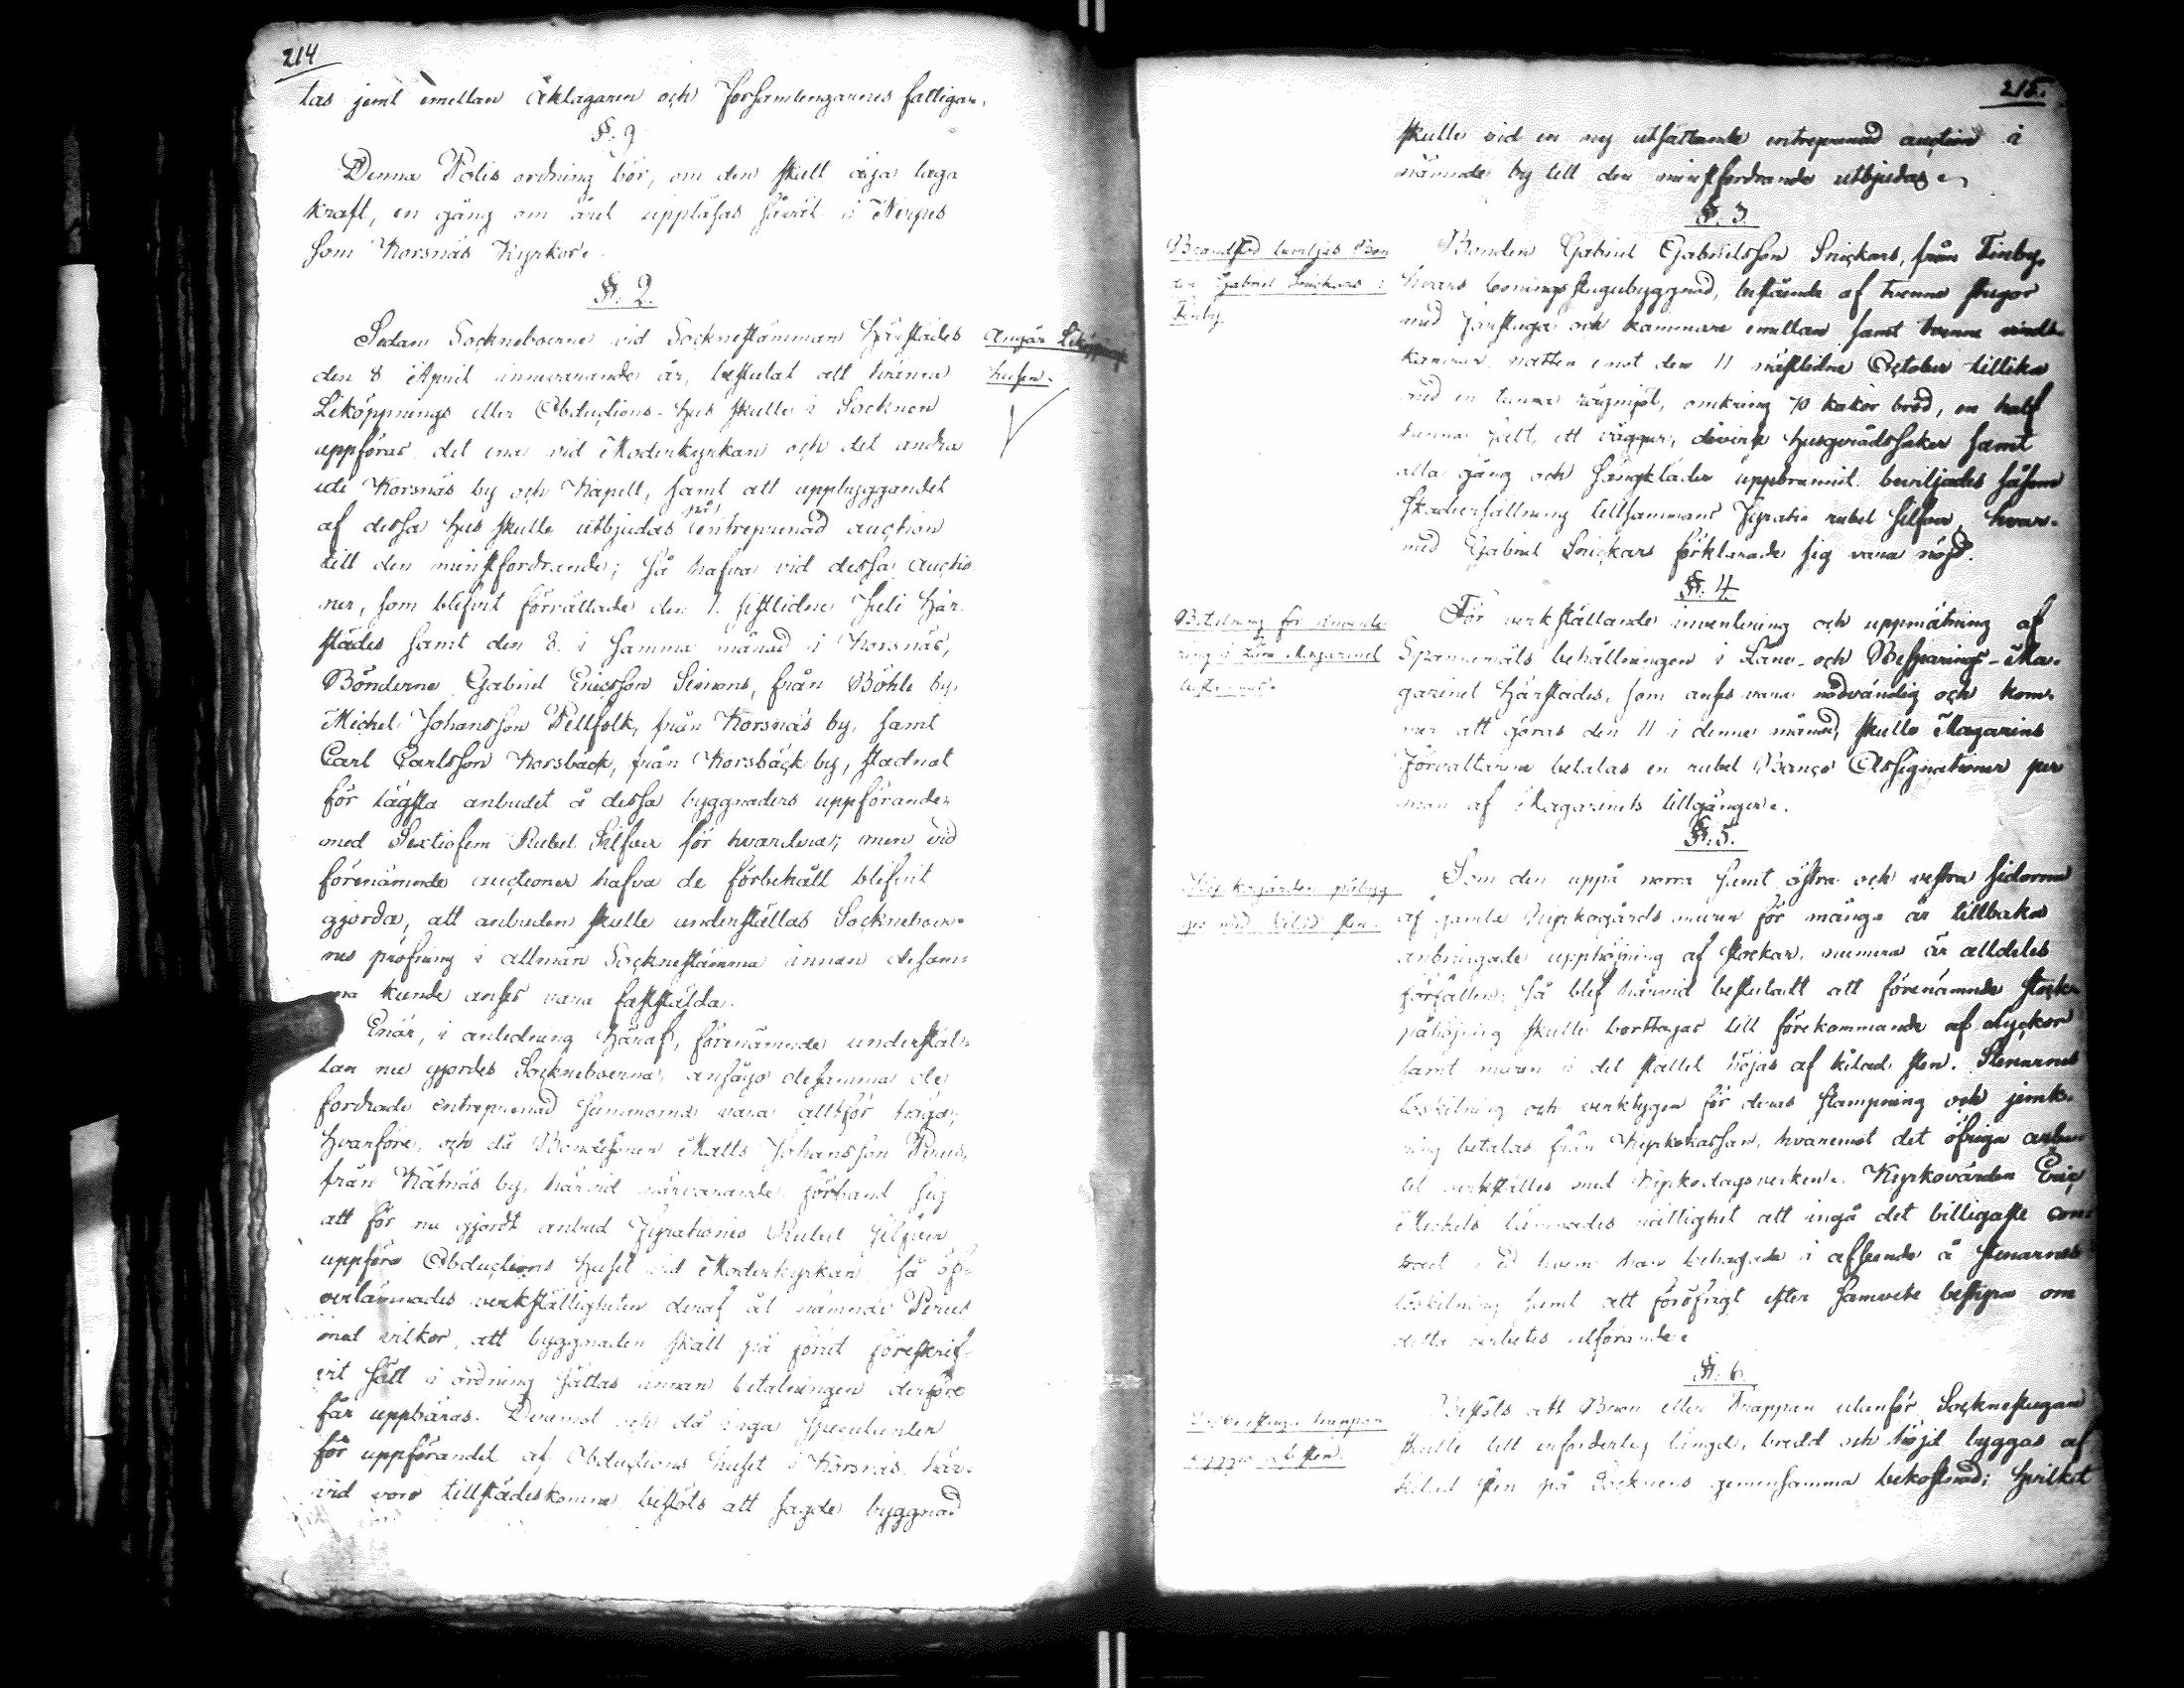 214
tas jemt emellan åklagaren och Församlingarnes fattiga.
§. 9
Denna Polis ordning bör, om den skall äga laga
kraft, en gång om året uppläsas såväl i Nerpes
som Korsnäs Kyrkor.
§. 2.
Sedan Sockneboerne vid Socknestämman härstädes
den 8 April innevarande år, beslutat att tvänne
Liköppnings eller Obductions-hus skulle i Socknen
uppföras det ena vid Moderkyrkan och det andra
uti Korsnäs by och Kapell, samt att uppbyggandet
af dessa hus skulle utbjudas på entreprenad auction
till den minstfordrande; så hafva vid dessa auctio
ner, som blifvit förrättade den 7. sistlidne Juli här-
städes samt den 8. i samma månad i Korsnäs,
Bönderne Gabriel Ericsson Simons, från Böhle by,
Michel Johansson Pellfolk, från Korsnäs by, samt
Carl Carlsson Korsbäck, från Korsbäck by, stadnat
för lägsta anbudet å dessa byggnaders uppförande,
med Sextiofem Rubel Silfver för hvardera; men vid
förenämnde auctioner hafva de förbehåll blifvit
gjorda, att anbuden skulle underställas Sockneboer-
nes pröfning i allmän Socknestämma innan desam-
ma kunde anses vara fastställda.
Enär, i anledning häraf, förenämnde underställ-
lan nu gjordes Sockneboerna, ansågo desamma de
fordrade entreprenad summorna vara alltför höga;
hvarföre, och då Bondesonen Matts Johansson Perus,
från Nätnäs by, härvid närvarande förband sig
att för nu gjordt anbud Fyrationio Rubel Silfver
uppföra Obductions huset vid Moderkyrkan, så öf-
verlämnades verkställigheten deraf åt nämnde Perus
med vilkor, att byggnaden skall på förut föreskrif-
vit sätt i ordning sättas innan betalningen derföre
får uppbäras. Deremot och då inga speculanter
för uppförandet af Obductions huset i Korsnäs här-
vid voro tillstädeskomne beslöts att sagde byggnad
Angår Liköppnings
husen.
215.
skulle vid en ny utsättande entreprenad auction i
nämnde by till den minstfordrande utbjudas.
§. 3.
Brandstod beviljas Bon
den Gabriel Snickars i
Finby
Bonden Gabriel Gabrielsson Snickars, från Finby,
hvars boningsstugubyggnad, bestående af tvenne stugor
med förstuga och kammare emellan samt tvenne vinds-
kamrar, natten emot den 11 nästlidne October tillika
med en tunna rågmjöl, omkring 70 kakor bröd, en half
tunna salt, ett väggur, diverse husgerådssaker samt
alla gång och sängkläder uppbrunnit, beviljades såsom
skadeersättning tillsammans Fyratio rubel silfver, hvar-
med Gabriel Snickars förklarade sig vara nöjd.
§. 4.
Betalning för invente-
ring i Låne Magazinet
bestämmes.
För verkställande inventering och uppmätning af
Spannemåls behållningen i Låne- och Besparings-Ma-
gazinet härstädes, som anses vara nödvändig och kom-
mer att göras den 11 i denna månad, skulle Magazins
Förvaltarne betalas en rubel Banco Assignationer per
man af Magazinets tillgångar.
§. 5.
Kyrkogården påbyg
ges med kilad sten.
Som den uppå norra samt östra och vestra sidorna
af gamla Kyrkogårds muren för många år tillbaka
anbringade upphöjning af stockar, numera är alldeles
förfallen; så blef härvid beslutadt att förenämnde stock-
påhöjning skulle borttagas till förekommande af olyckor
samt muren i det stället höjas af kilad sten. Stenarnes
löskilning och verktygen för deras stampning och jemk-
ning betalas från Kyrkokassan, hvaremot det öfriga arbe-
tet verkställes med Kyrkodagsverken. Kyrkovärden Eric
Michels lämnades rättighet att ingå det billigaste con-
tract med hvem han behagade i afseende å stenarnes
löskilning samt att föröfrigt efter samvete bestyra om
detta arbetes utförande.
§. 6.
Socknestugu trappan
bygges af sten.
Beslöts att Bron eller Trappan utanför Socknestugan
skulle till erforderlig längd, bredd och höjd byggas af
kilad sten på Socknens gemensamma bekostnad; hvilket